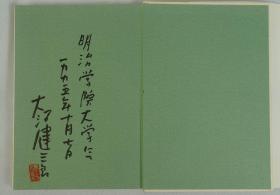 明治学院大学にて
一九九五年十月七日
大江健三郎